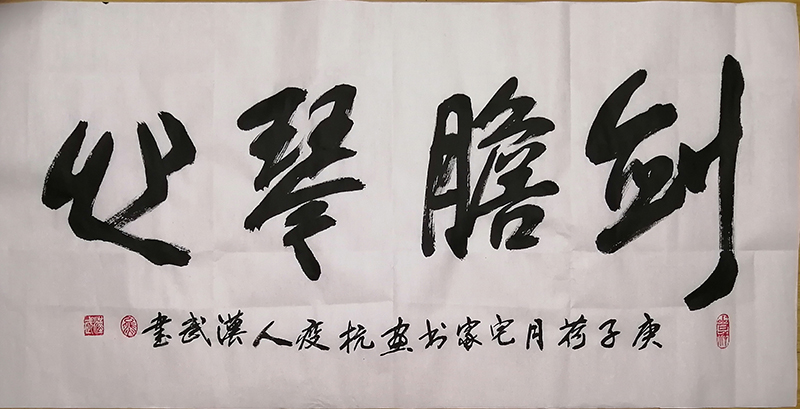 剑膽琴心
庚子荷月宅家书画抗疫人漢武書